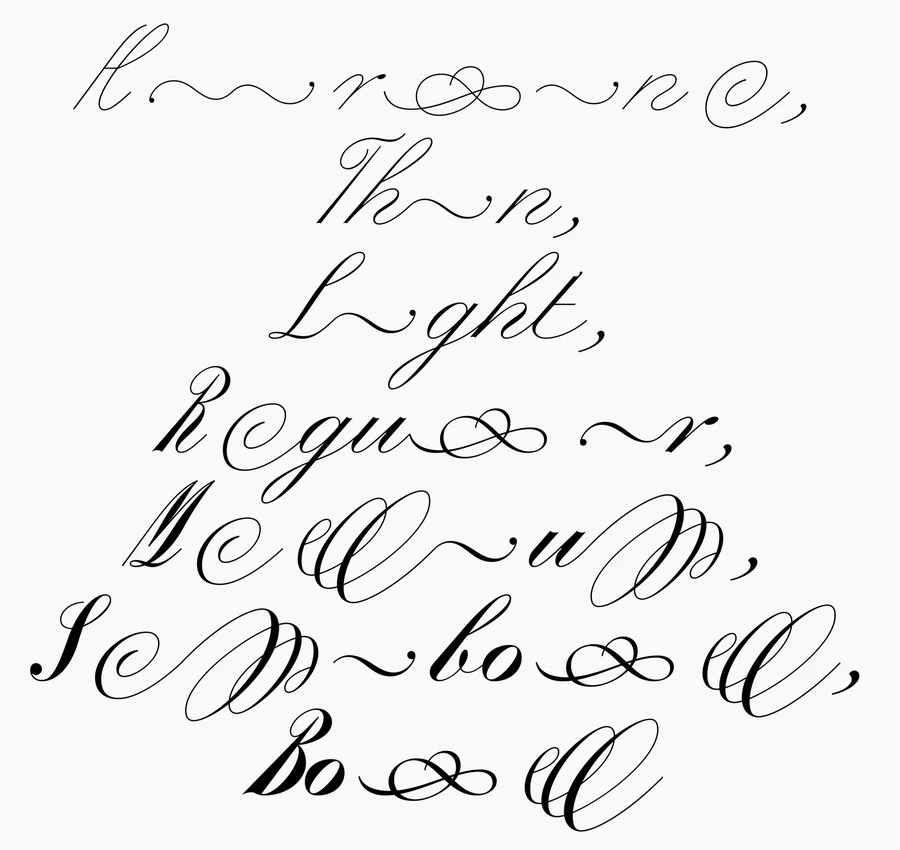 Hairline,
Thin,
Light,
Regular,
Medium,
Semibold,
Bold